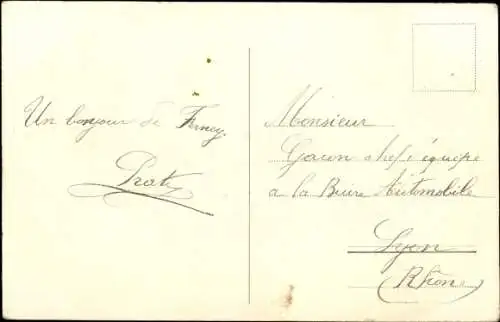 Un bonjour de Ferney.
Prat
Monsieur
chef, équipe
a la Buire Automobile
Lyon
(Rhône)